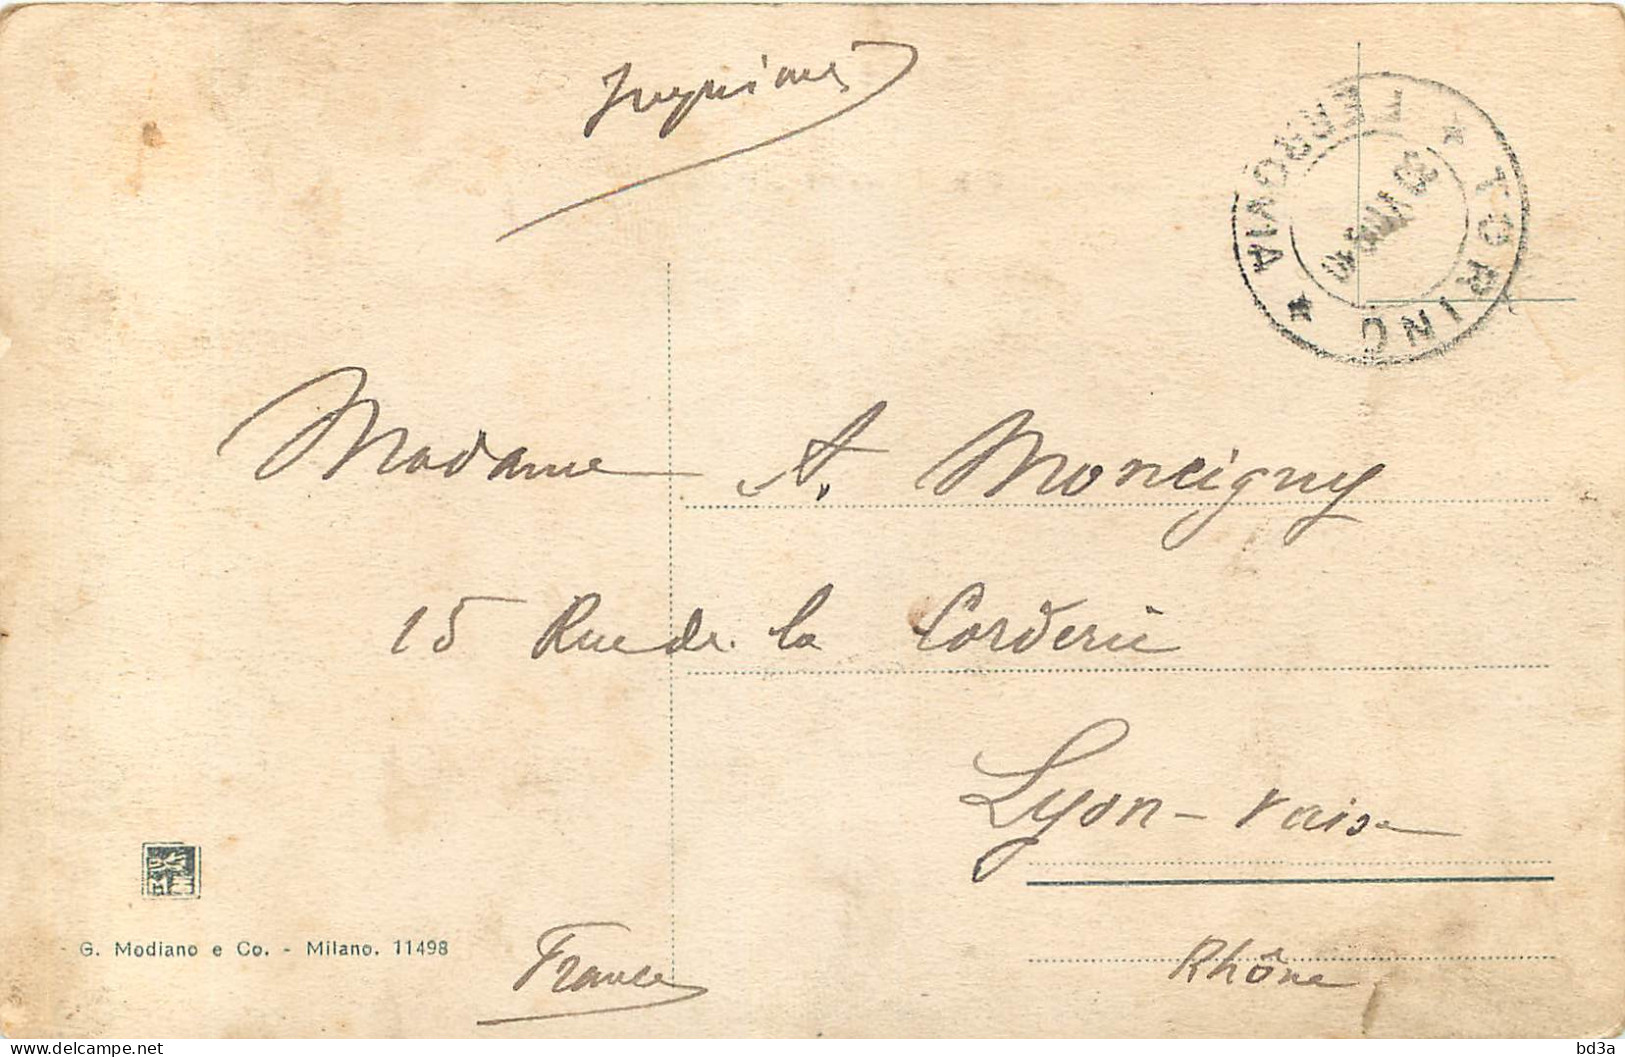 Imprimés
TORINO * FERROVIA *
Madame A. Moncigny
15 Rue de la Corderie
Lyon-Vaise
Rhône
France
G. Modiano e Co. - Milano. 11498
bd3a